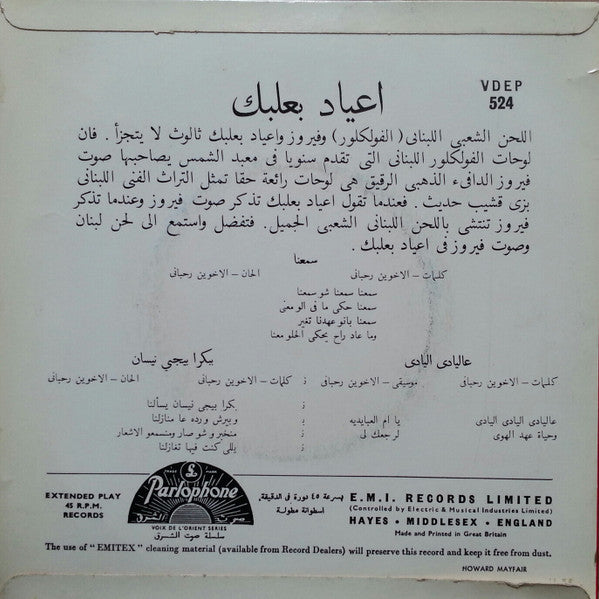 VDEP
524
اعياد بعلبك
اللحن الشعبي اللبناني (الفولكلور) وفيروز واعياد بعلبك ثالوث لا يتجزأ . فان
لوحات الفولكلور اللبناني التى تقدم سنويا فى معبد الشمس يصاحبها صوت
فيروز الدافىء الذهبي الرقيق هى لوحات رائعة حقا تمثل التراث الفنى اللبنانى
بزى قشيب حديث . فعندما تقول اعياد بعلبك تذكر صوت فيروز وعندما تذكر
فيروز تنتشى باللحن اللبنانى الشعبي الجميل . فتفضل واستمع الى لحن لبنان
وصوت فيروز فى اعياد بعلبك .
سمعنا
كلمات – الاخوين رحبانى الحان – الاخوين رحبانى
سمعنا سمعنا شو سمعنا
سمعنا حكى ما فى الو معنى
سمعنا بانو عهدنا تغير
وما عاد راح يحكى الحلو معنا
عاليادى اليادى
كلمات – الاخوين رحبانى موسيقى – الاخوين رحبانى
عاليادى اليادى اليادى يا ام العبايديه
وحياة عهد الهوى لرجعك لى
بكرا بيجي نيسان
كلمات – الاخوين رحبانى الحان – الاخوين رحبانى
بكرا بيجي نيسان يسألنا
وبيرش وردة عا منازلنا
منخبر و شو صار ومنسمعو الاشعار
يللى كنت فيها تغازلنا
EXTENDED PLAY
45 R.P.M.
RECORDS
TRADE MARK
Parlophone
صوت الشرق
VOIX DE L'ORIENT SERIES
سلسلة صوت الشرق
بسرعة ٤٥ دورة فى الدقيقة,
اسطوانة مطولة
E.M.I. RECORDS LIMITED
(Controlled by Electric & Musical Industries Limited)
HAYES • MIDDLESEX • ENGLAND
Made and Printed in Great Britain
The use of "EMITEX" cleaning material (available from Record Dealers) will preserve this record and keep it free from dust.
HOWARD MAYFAIR